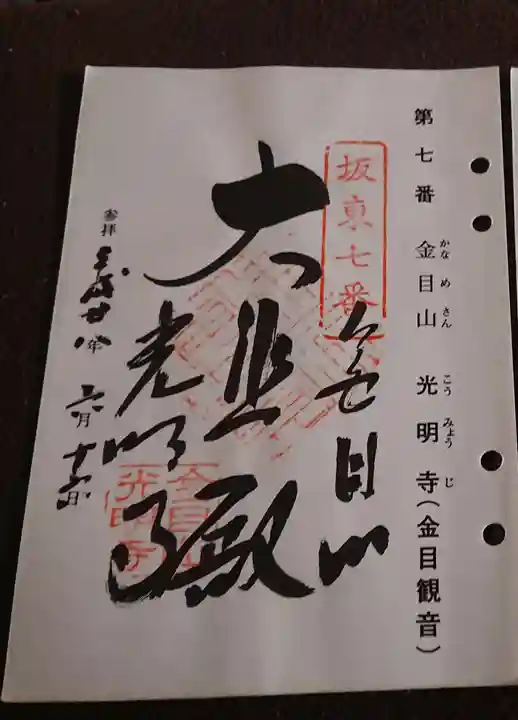 第七番 金目山 光明寺(金目観音)
かな め さん こう みょう じ
坂東七番
金目山
大悲殿
光明寺
金目山
光明寺
参拝 平成廿八年 六月 十六日